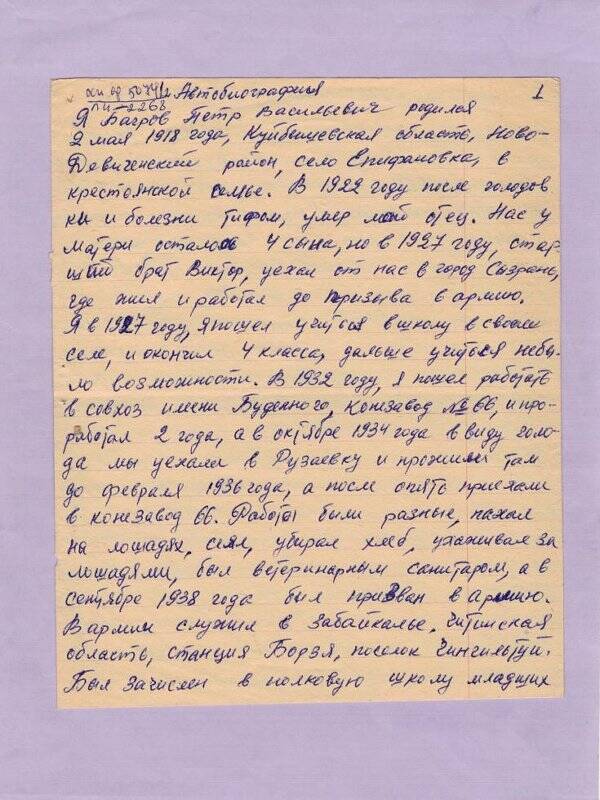 Автобиография
1
ПИ-2268
Я Багров Петр Васильевич родился
2 мая 1918 года, Куйбышевская область, Ново-
Девиченский район, село Епифановка, в
крестьянской семье. В 1922 году после голодов
ки и болезни тифом, умер мой отец. Нас у
матери осталось 4 сына, но в 1927 году, стар-
ший брат Виктор, уехал от нас в город Сызрань,
где жил и работал до призыва в армию.
Я в 1927 году, я пошел учиться в школу в своем
селе, и окончил 4 класса, дальше учиться небы-
ло возможности. В 1932 году, я пошел работать
в совхоз имени Буденного, конзавод № 66, и про-
работал 2 года, а в октябре 1934 года в виду голо-
да мы уехали в Рузаевку и прожили там
до февраля 1936 года, а после опять приехали
в конезавод 66. Работы были разные, пахал
на лошадях, сеял, убирал хлеб, ухаживал за
лошадями, был ветеринарным санитаром, а в
сентябре 1938 года был призван в армию.
В армии служил в Забайкалье. Читинская
область, станция Борзя, поселок Чингильтуй.
Был зачислен в полковую школу младших